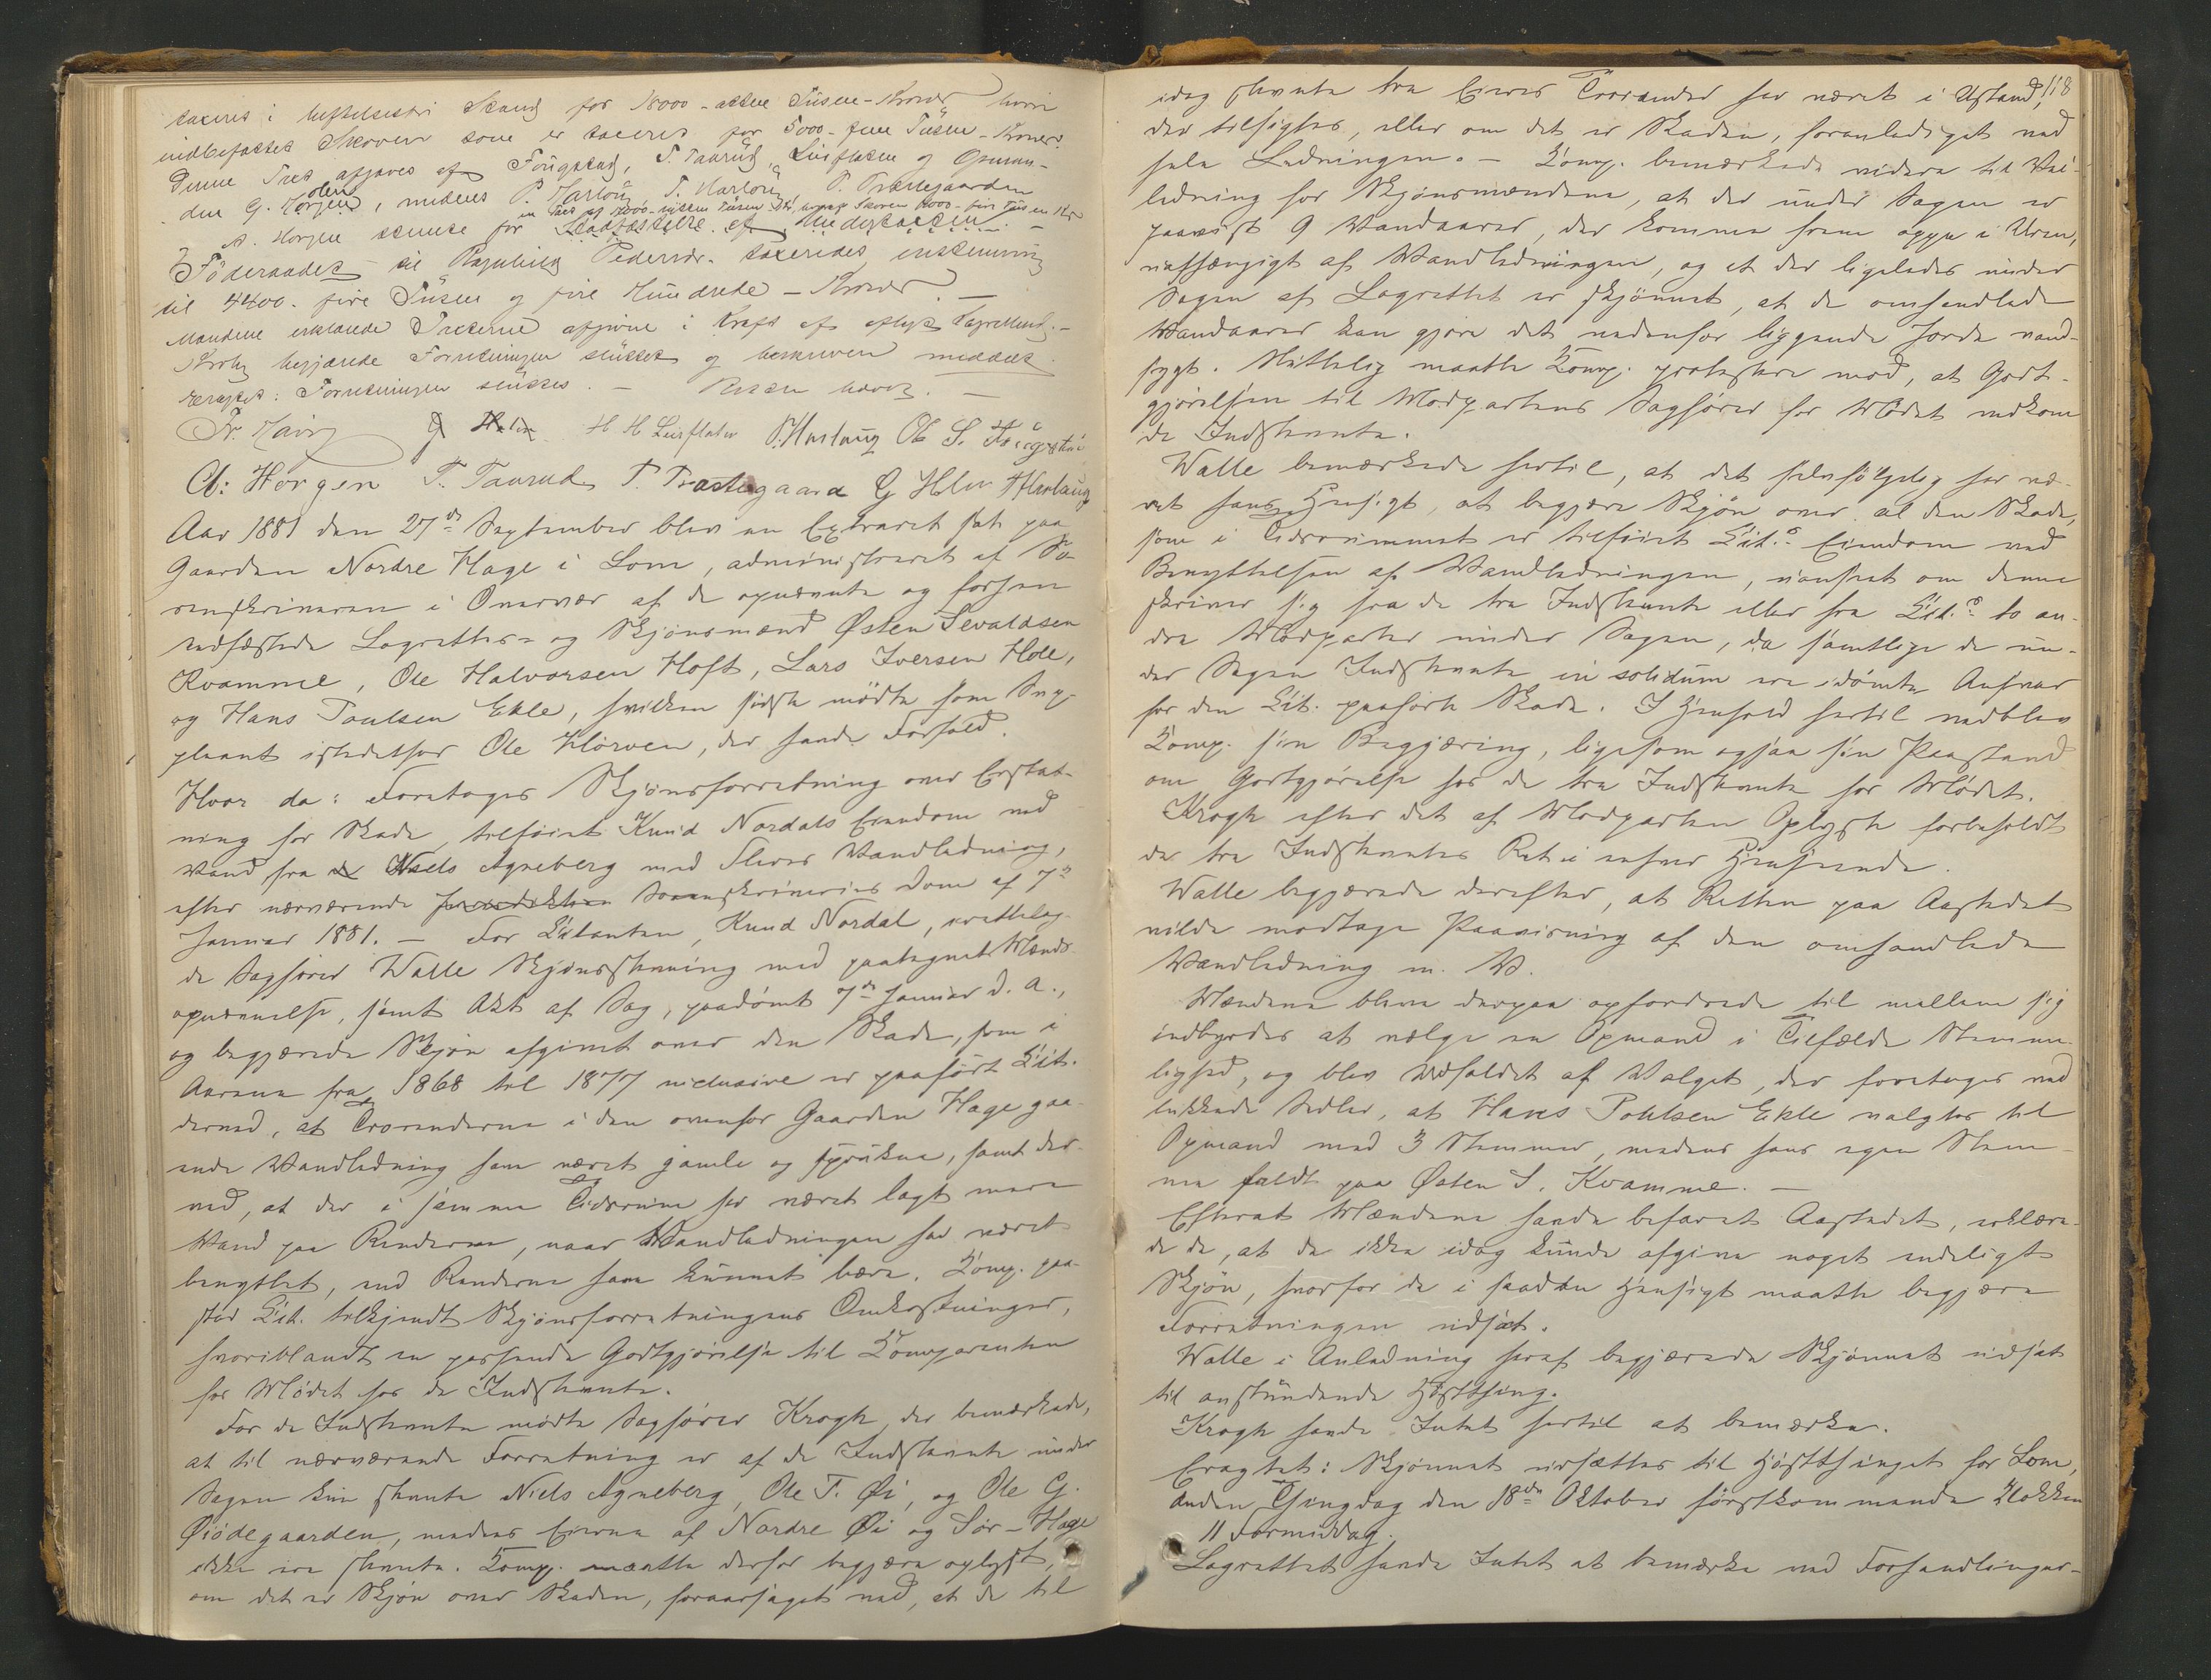 taxeres i beskreven Stand for 18000 - atten Tusen - Kroner hvori
indbefattet Skoven som er taxeret for 5000 - fem Tusen - Kroner.
Denne Taxt afgaves af Fougstad, T. Taarud, Leirflaten og Opman-
den G. Horgen, medens P. Harlaug, T. Harlaug, P. Træstegaarden
A. Horgen stemte for Stadfæstelse af Undertaxten
Föderaadet til Ragnhild Pedersdr. taxeredes enstemmig
til 4400. fire Tusen og fire Hundrede - Kroner. -
Mændene erklærede Taxterne afgivne i Kraft af aflagt Lagrettesed. -
Krohg begjærede Forretningen sluttet og beskreven meddelt.
Eragtet: Forretningen sluttes. - Retten hævet. -
H H Leirflaten P. Harlaug Ole S. Fougstad
A: Horgen T. Taarud P. Træstegaard G Holen T Harlaug
Aar 1881 den 27de September blev en Extraret sat paa
Gaarden Nordre Hage i Lom, administreret af So-
renskriveren i Overvær af de opnævnte og forhen
edfæstede Lagrettes- og Skjönsmænd Østen Sevaldsen
Kvamme, Ole Halvorsen Hoft, Lars Iversen Hole,
og Hans Poulsen Ekle, hvilken sidste mödte som Sup-
pleant istedetfor Ole Hörven, der havde Forfald.
Hvor da: Foretoges Skjönsforretning over Erstat-
ning for Skade, tilföiet Knud Nordals Eiendom ved
Vand fra Niels Agneberg med Fleres Vandledning,
efter nærværende Sorenskriveries Dom af 7de
Januar 1881. - For Citanten, Knud Nordal, fremlag-
de Sagförer Walle Skjönsstevning med paategnet Mænds-
opnævnelse, samt Akt af Sag, paadömt 7de Januar d. A.,
og begjærede Skjön afgivet over den Skade, som i
Aarene fra 1868 til 1877 inclusive er paafört Cit.
derved, at Trorenderne i den ovenfor Gaarden Hage gaa-
ende Vandledning have været gamle og sprukne, samt der-
ved, at der i samme Tidsrum har været lagt mere
Vand paa Renderne, naar Vandledningen har været
benyttet, end Renderne have kunnet bære. Comp. paa-
stod Cit. tilkjendt Skjönsforretningens Omkostninger,
hvoriblandt en passende Godtgjörelse til Comparenten
for Mödet hos de Indstevnte.
For de Indstevnte mödte Sagförer Krogh, der bemærkede,
at til nærværende Forretning er af de Indstevnte under
Sagen kun stevnte Niels Agneberg, Ole T. Øi, og Ole G.
Øiödegaarden, medens Eierne af Nordre Øi og Sör-Hage
ikke ere stevnte. Comp. maatte derfor begjære oplyst,
om det er Skjön over Skaden, foraarsaget ved, at de til
118
idag stevnte tre Eieres Trorender har været i Ustand,
der tilsigtes, eller om det er Skaden, foranlediget ved
hele Ledningen. - Comp. bemærkede videre til Vei-
ledning for Skjönsmændene, at der under Sagen er
paavist 9 Vandaarer, der komme frem oppe i Uren,
uafhængigt af Vandledningen, og at det ligeledes under
Sagen af Lagrettet er skjönnet, at de omhandlede
Vandaarer kan gjöre det nedenfor liggende Jorde vand-
sygt. Sluttelig maatte Comp. protestere mod, at Godt-
gjörelsen til Modpartens Sagförer for Mödet vedkom
de Indstevnte.
Walle bemærkede hertil, at det selvfölgelig har væ-
ret hans Hensigt, at begjære Skjön over al den Skade,
som i Tidsrummet er tilföiet Cit.s Eiendom ved
Benyttelsen af Vandledningen, uanseet om denne
skriver sig fra de tre Indstevnte eller fra Cit.s to an-
dre Modparter under Sagen, da samtlige de un-
der Sagen Indstevnte in solidum ere idömte Ansvar
for den Cit. paaförte Skade. I Henhold hertil vedblev
Comp. sin Begjæring, ligesom ogsaa sin Paastand
om Godtgjörelse hos de tre Indstevnte for Mödet.
Krogh efter det af Modparten Oplyste forbeholdt
de tre Indstevntes Ret i enhver Henseende.
Walle begjærede derefter, at Retten paa Aastedet
vilde modtage Paavisning af den omhandlede
Vandledning m. V.
Mændene bleve derpaa opfordrede til mellem sig
indbyrdes at vælge en Opmand i Tilfælde Stemme-
lighed, og blev Udfaldet af Valget, der foretoges ved
lukkede Sedler, at Hans Pohlsen Ekle valgtes til
Opmand med 3 Stemmer, medens hans egen Stem-
me faldt paa Østen S. Kvamme. -
Efterat Mændene havde befaret Aastedet, erklære-
de de, at de ikke idag kunde afgive noget endeligt
Skjön, hvorfor de i saadan Hensigt maatte begjære
Forretningen udsat.
Walle i Anledning heraf begjærede Skjönnet udsat
til anstundende Hösting.
Krogh havde Intet hertil at bemærke.
Eragtet: Skjönnet udsættes til Höstthinget for Lom,
anden Thingdag den 18de Oktober förstkommende Klokken
11 Formiddag.
Lagrettet havde Intet at bemærke ved Forhandlinger-